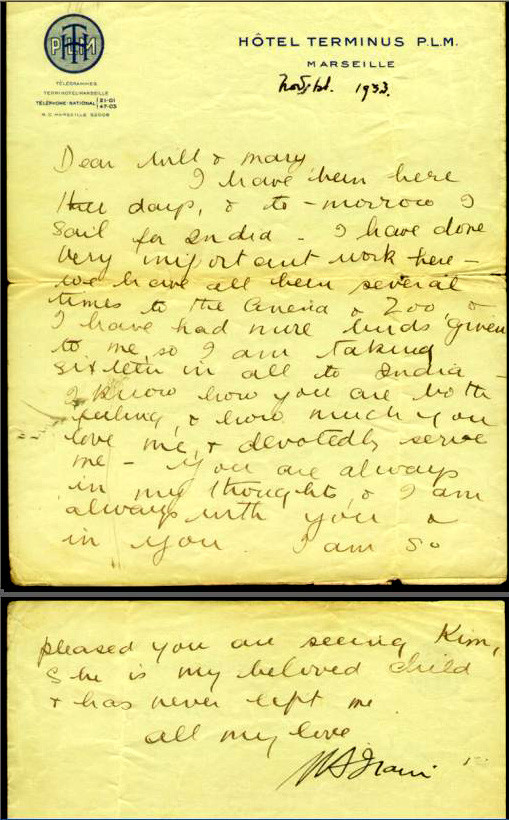 P.L.M
TÉLÉGRAMMES
TERMINHOTEL MARSEILLE
TÉLÉPHONE-NATIONAL 21-01
47-05
R.C. MARSEILLE
HÔTEL TERMINUS P.L.M.
MARSEILLE
1933.
Dear Will & Mary
I have been here
three days, & to-morrow I
sail for India - I have done
very important work here -
we have all been several
times to the Cinema & Zoo, &
I have had birds given
to me, so I am taking
sixteen in all to India -
I know how you are both
feeling, & how much you
love me, & devotedly serve
me - You are always
in my thoughts, & I am
always with you &
in you. I am so
pleased you are seeing Kim,
She is my beloved child
& has never left me
all my love
M.S. Irani